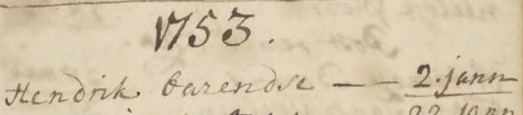 1753.
Hendrik barendse – – 2. jann
22 jann